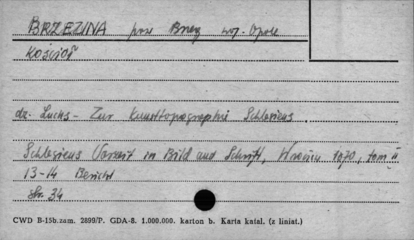 BRZEZINA pow Brzeg woj. Opole
Kościół
dz. Luchs - Zur Kunsttopographie Schlesiens
Schlesiens Vorzeit in Bild und Schrift, 1870, tom II
13-14 Bericht
Str. 34
CWD B-15b.zam. 2899/P. GDA-8. 1.000.000. karton b. Karta katal. (z liniat.)